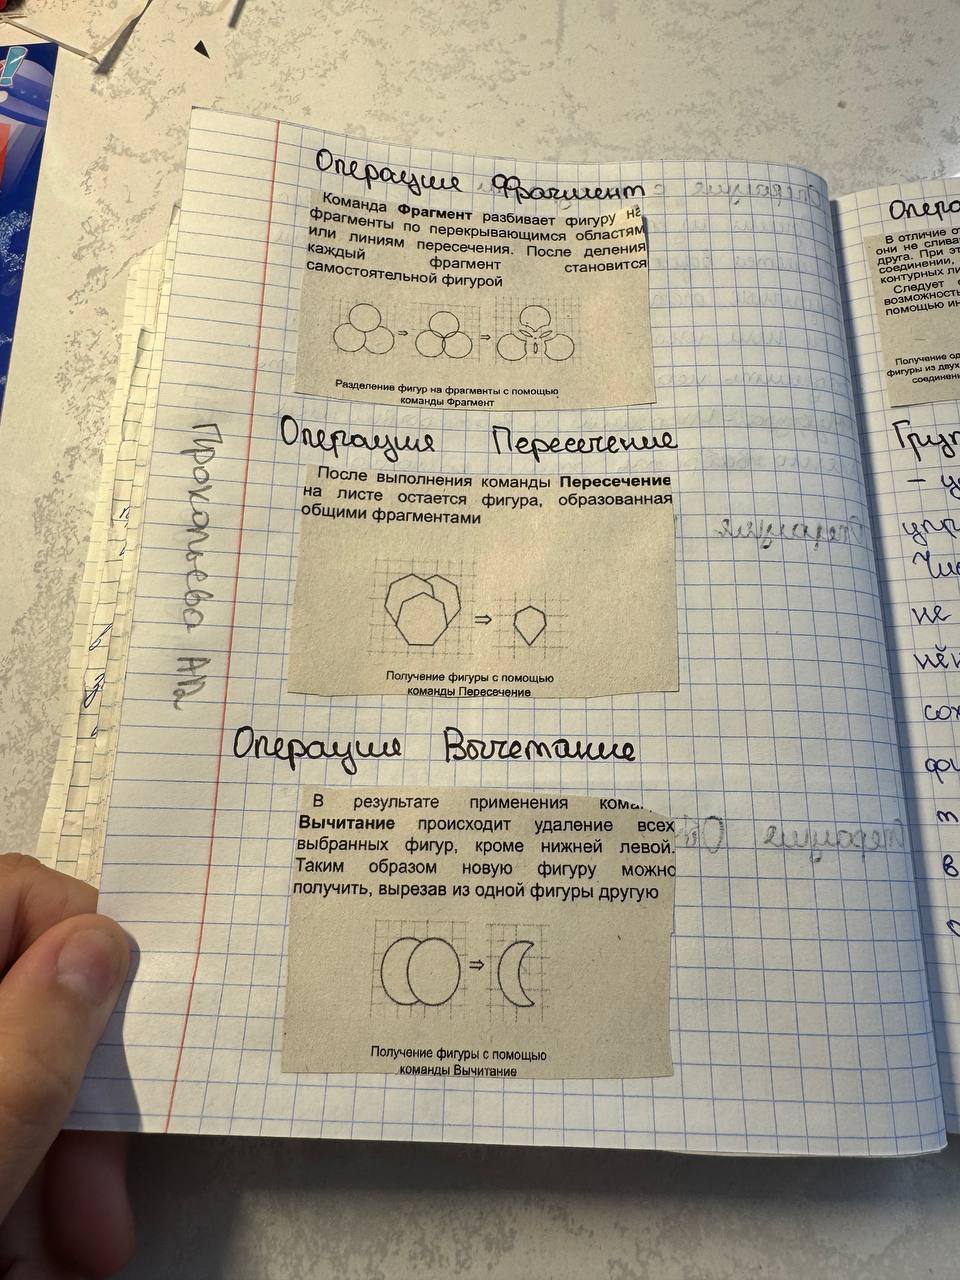 Операция Фрагмент
Команда Фрагмент разбивает фигуру на
фрагменты по перекрывающимся областям
или линиям пересечения. После деления
каждый фрагмент становится
самостоятельной фигурой
Разделение фигур на фрагменты с помощью
команды Фрагмент
Операция Пересечение
После выполнения команды Пересечение
на листе остается фигура, образованная
общими фрагментами
Получение фигуры с помощью
команды Пересечение
Операция Вычетание
В результате применения кома
Вычитание происходит удаление всех
выбранных фигур, кроме нижней левой.
Таким образом новую фигуру можно
получить, вырезав из одной фигуры другую
Получение фигуры с помощью
команды Вычитание
Прокопьева
Опера
В отличие от
они не слива
друга. При эт
соединении,
контурных ли
Следует
возможность
помощью ин
Получение од
фигуры из двух
соединен
Груп
упр
не
сох
в